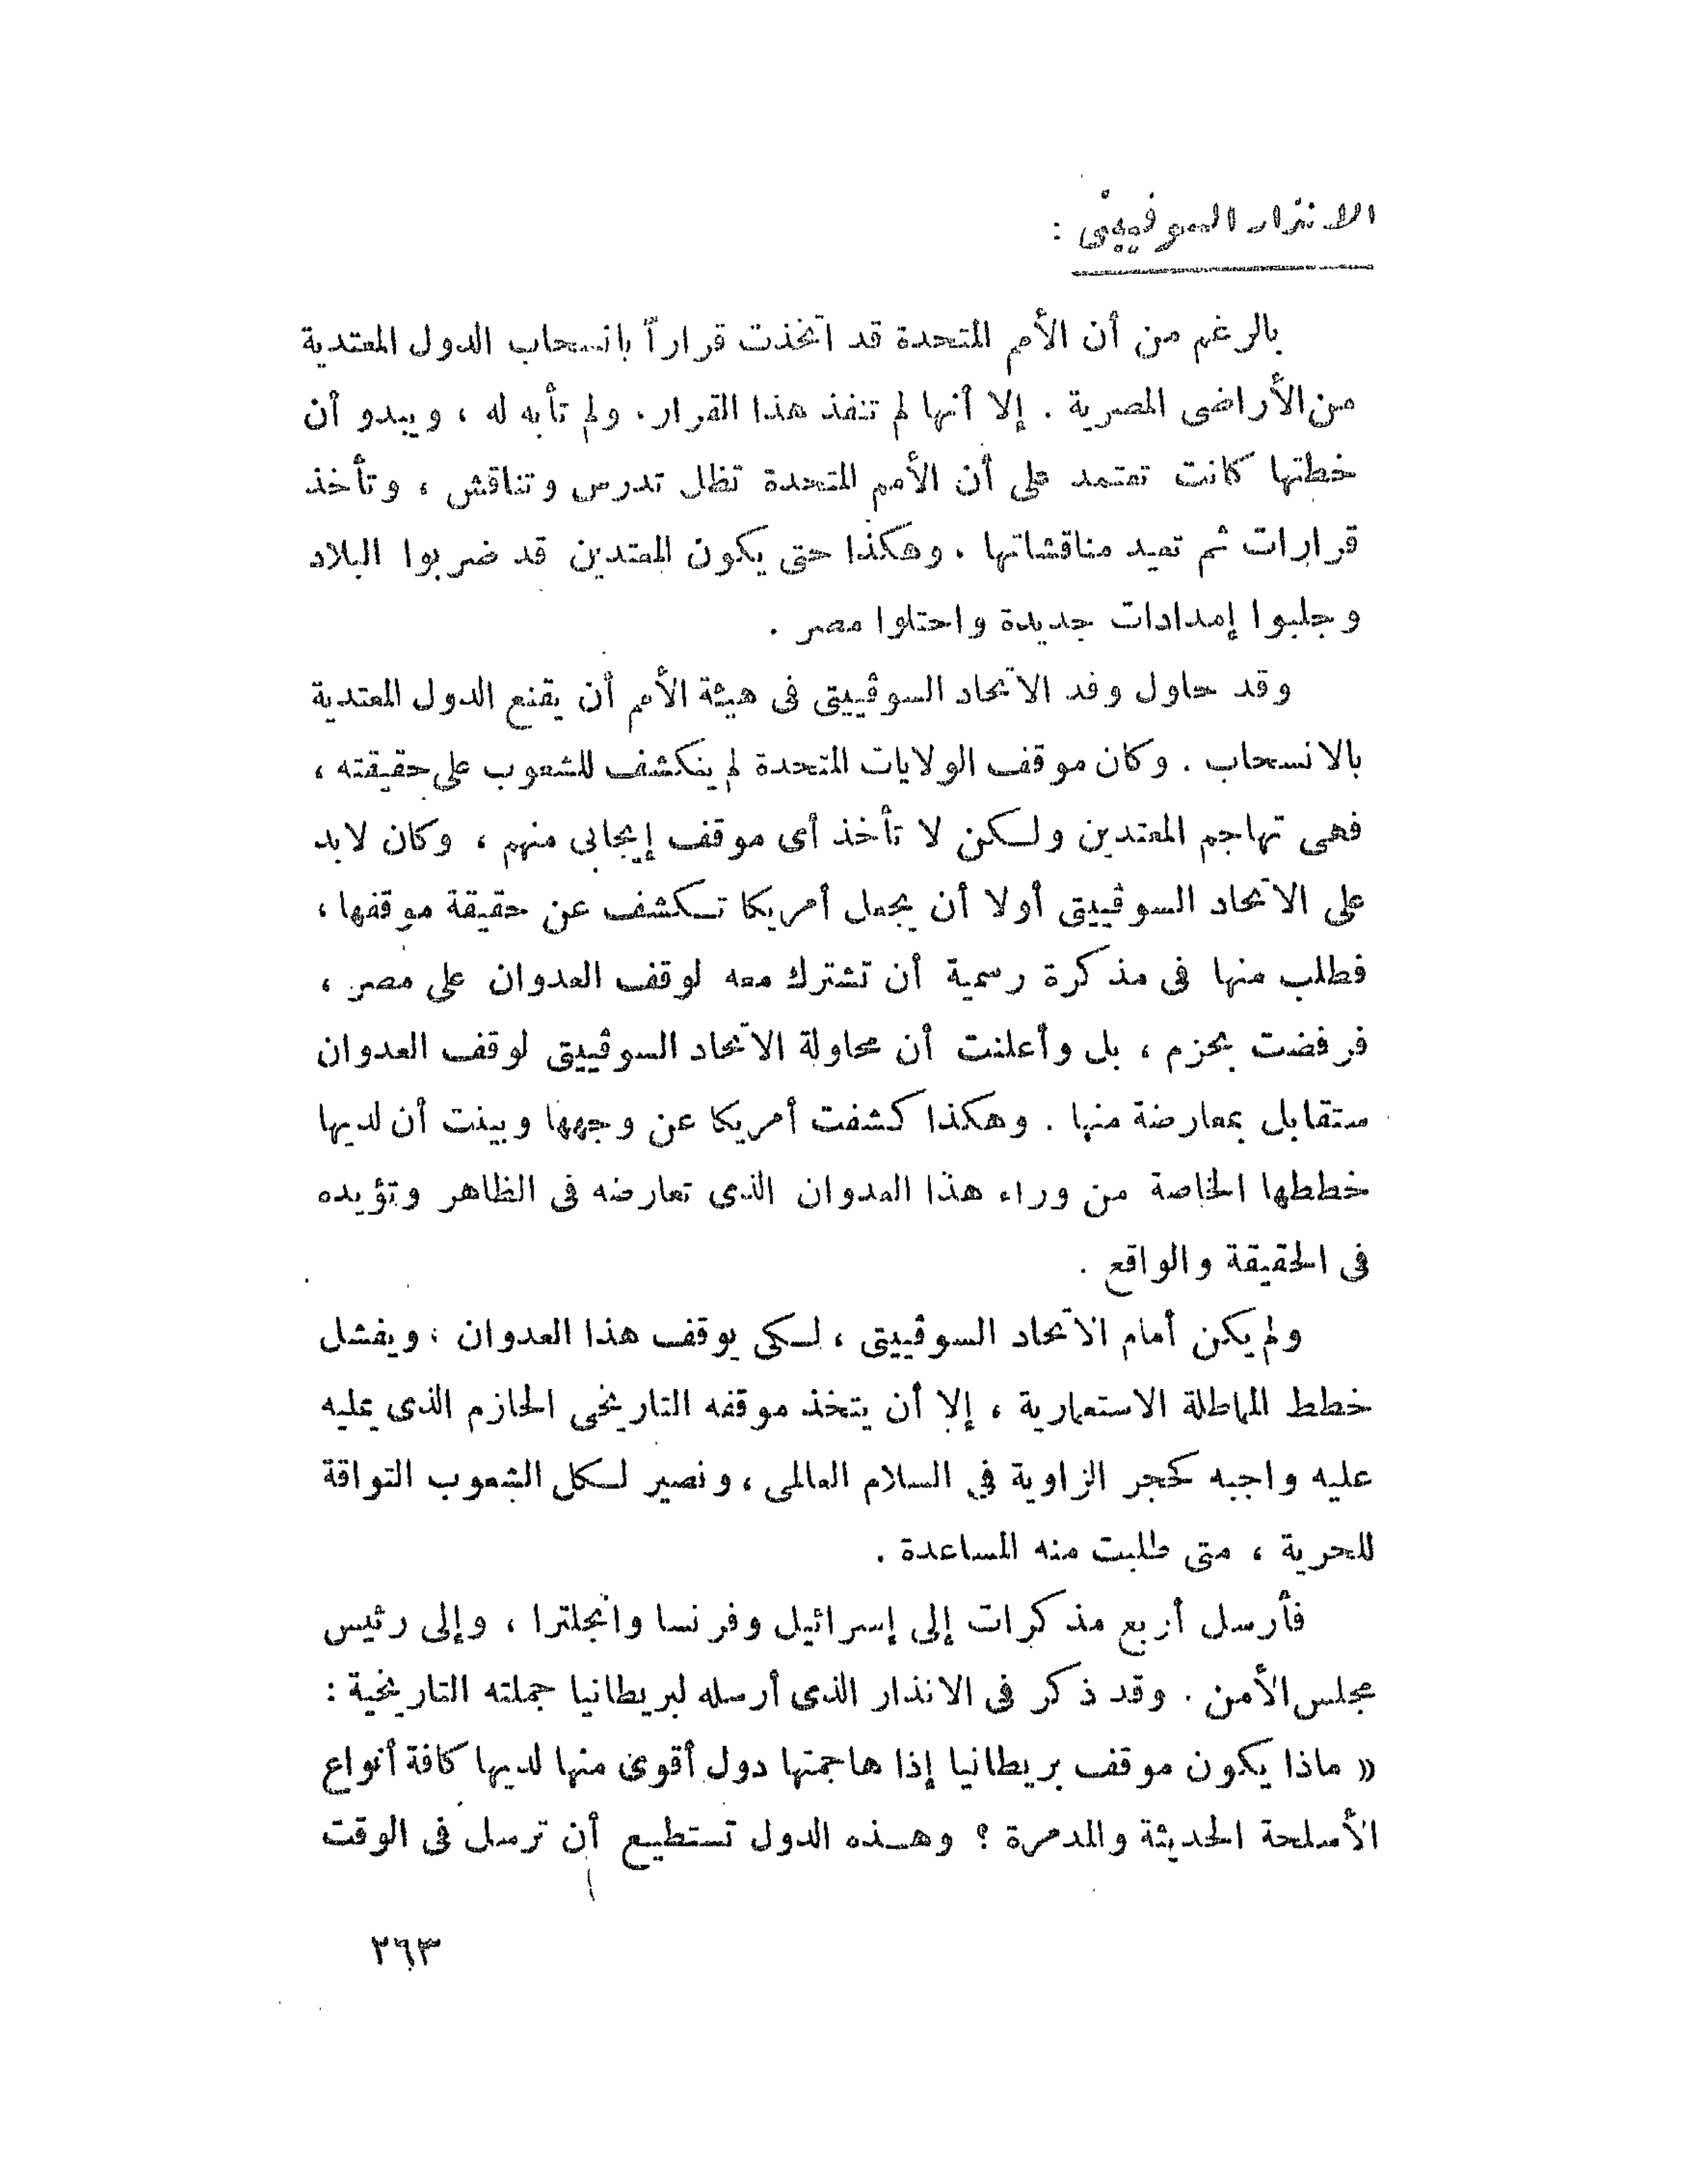 الانذار السوفييتى :
بالرغم من أن الأمم المتحدة قد اتخذت قراراً بانسحاب الدول المعتدية
من الأراضى المصرية . إلا أنها لم تنفذ هذا القرار . ولم تأبه له ، ويبدو أن
خطتها كانت تعتمد على أن الأمم المتحدة تظل تدرس وتناقش ، وتأخذ
قرارات ثم تعيد مناقشاتها . وهكذا حتى يكون المعتدين قد ضربوا البلاد
وجلبوا إمدادات جديدة واحتلوا مصر .
وقد حاول وفد الاتحاد السوڤييتى فى هيئة الأمم أن يقنع الدول المعتدية
بالانسحاب . وكان موقف الولايات المتحدة لم ينكشف للشعوب على حقيقته ،
فهى تهاجم المعتدين ولكن لا تأخذ أى موقف إيجابى منهم ، وكان لابد
على الاتحاد السوڤييتى أولا أن يجعل أمريكا تكشف عن حقيقة موقفها ،
فطلب منها فى مذكرة رسمية أن تشترك معه لوقف العدوان على مصر ،
فرفضت بحزم ، بل وأعلنت أن محاولة الاتحاد السوڤييتى لوقف العدوان
ستقابل بمعارضة منها . وهكذا كشفت أمريكا عن وجهها وبينت أن لديها
خططها الخاصة من وراء هذا العدوان الذى تعارضه فى الظاهر وتؤيده
فى الحقيقة والواقع .
ولم يكن أمام الاتحاد السوڤييتى ، لكى يوقف هذا العدوان ؛ ويفشل
خطط المماطلة الاستعمارية ، إلا أن يتخذ موقفه التاريخى الحازم الذى يمليه
عليه واجبه كحجر الزاوية فى السلام العالمى ، ونصير لكل الشعوب التواقة
للحرية ، متى طلبت منه المساعدة .
فأرسل أربع مذكرات إلى إسرائيل وفرنسا وانجلترا ، وإلى رئيس
مجلس الأمن . وقد ذكر فى الانذار الذى أرسله لبريطانيا جملته التاريخية :
« ماذا يكون موقف بريطانيا إذا هاجمتها دول أقوى منها لديها كافة أنواع
الأسلحة الحديثة والمدمرة ؟ وهذه الدول تستطيع أن ترسل فى الوقت
٢٦٣